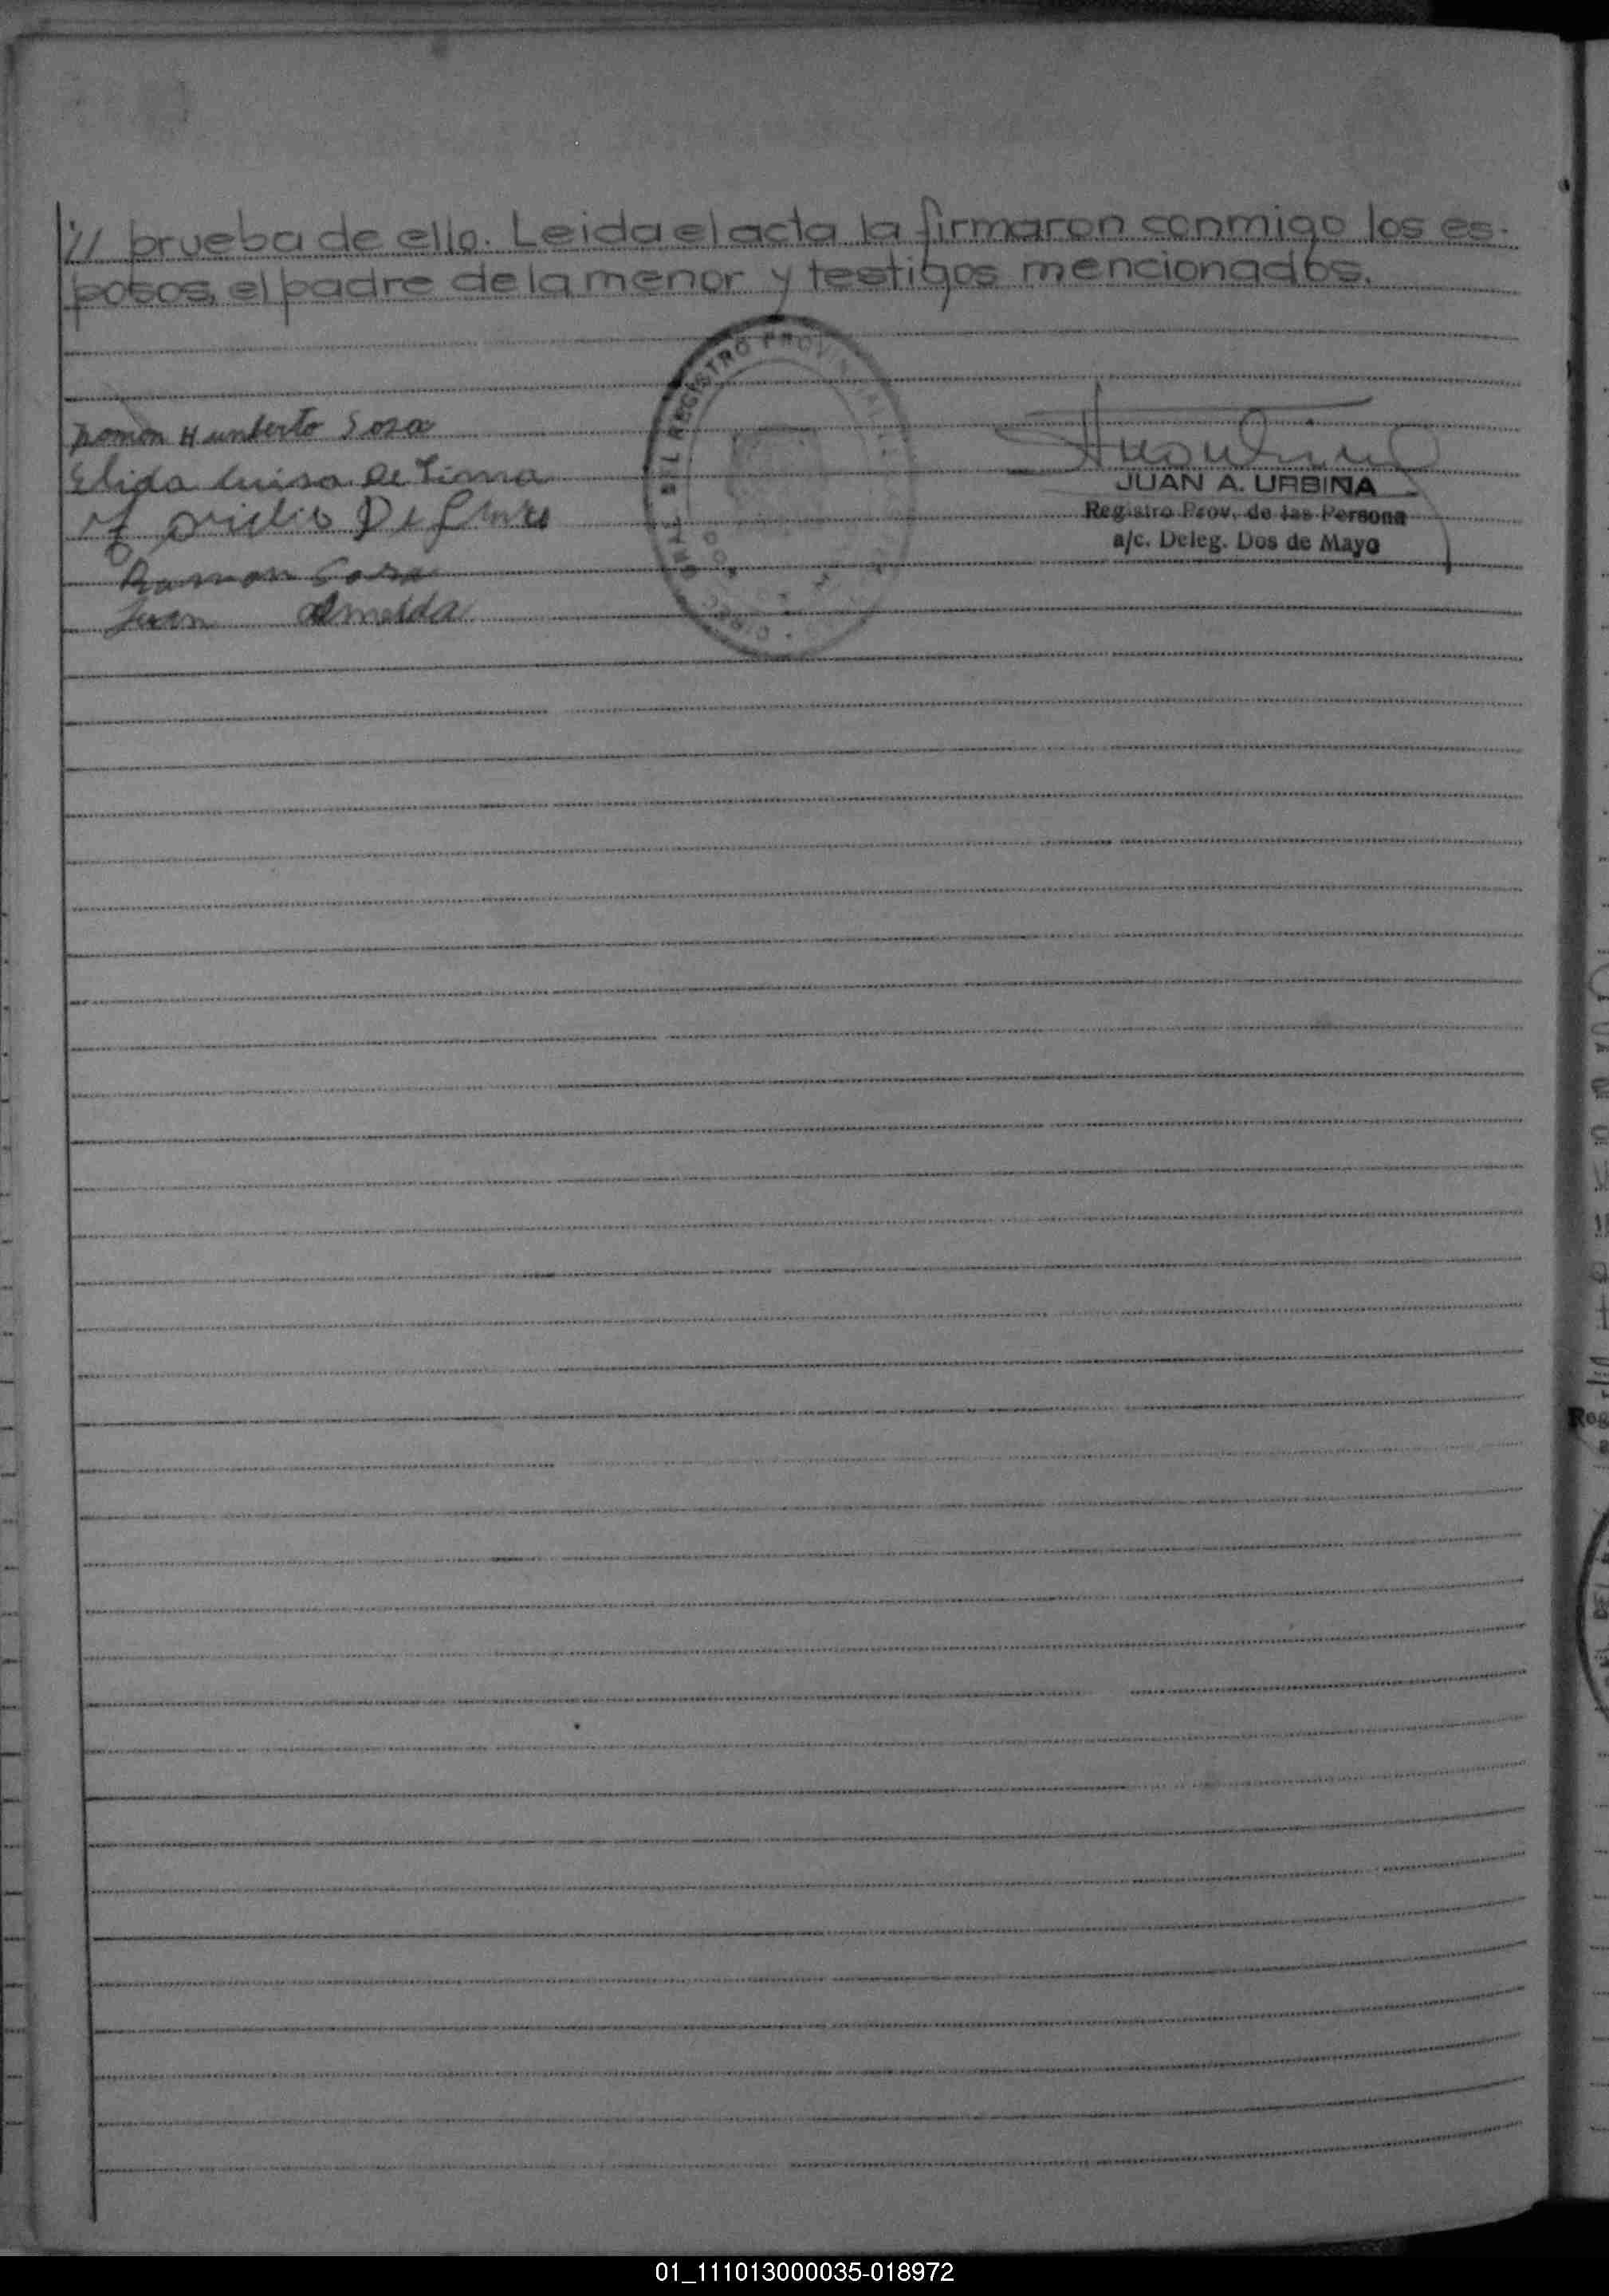 // prueba de ello. Leida el acta la firmaron conmigo los es-
posos, el padre de la menor y testigos mencionados.
Ramon Humberto Sosa
Elida Luisa De Lima
JUAN A. URBINA
Registro Prov. de las Persona
a/c. Deleg. Dos de Mayo
De
Ramon Sosa
Juan Almeida
REGISTRO PROVINCIAL
01_111013000035-018972